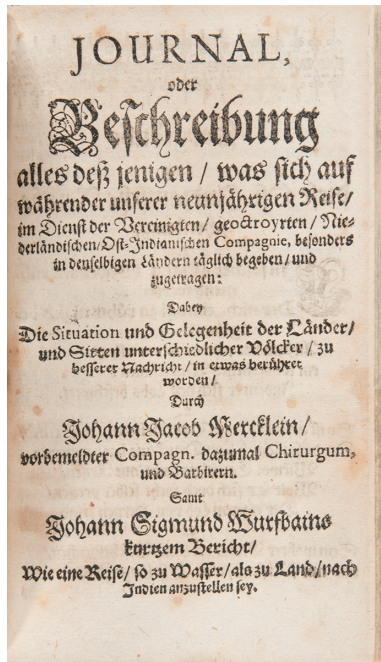 JOURNAL,
oder
Beſchreibung
alles deß jenigen / was ſich auf
währender unſerer neunjährigen Reiſe /
im Dienſt der Vereinigten / geoctroyrten / Nie-
derländiſchen / Oſt-Indianiſchen Compagnie, beſonders
in denſelbigen Ländern täglich begeben / und
zugetragen:
Dabey
Die Situation und Gelegenheit der Länder /
und Sitten unterſchiedlicher Völcker / zu
beſſerer Nachricht / in etwas berühret
worden /
Durch
Johann Jacob Mercklein /
vorbemeldter Compagn. dazumal Chirurgum,
und Barbirern.
Samt
Johann Sigmund Wurfbains
kurtzem Bericht /
Wie eine Reiſe / ſo zu Waſſer / als zu Land / nach
Indien anzuſtellen ſey.